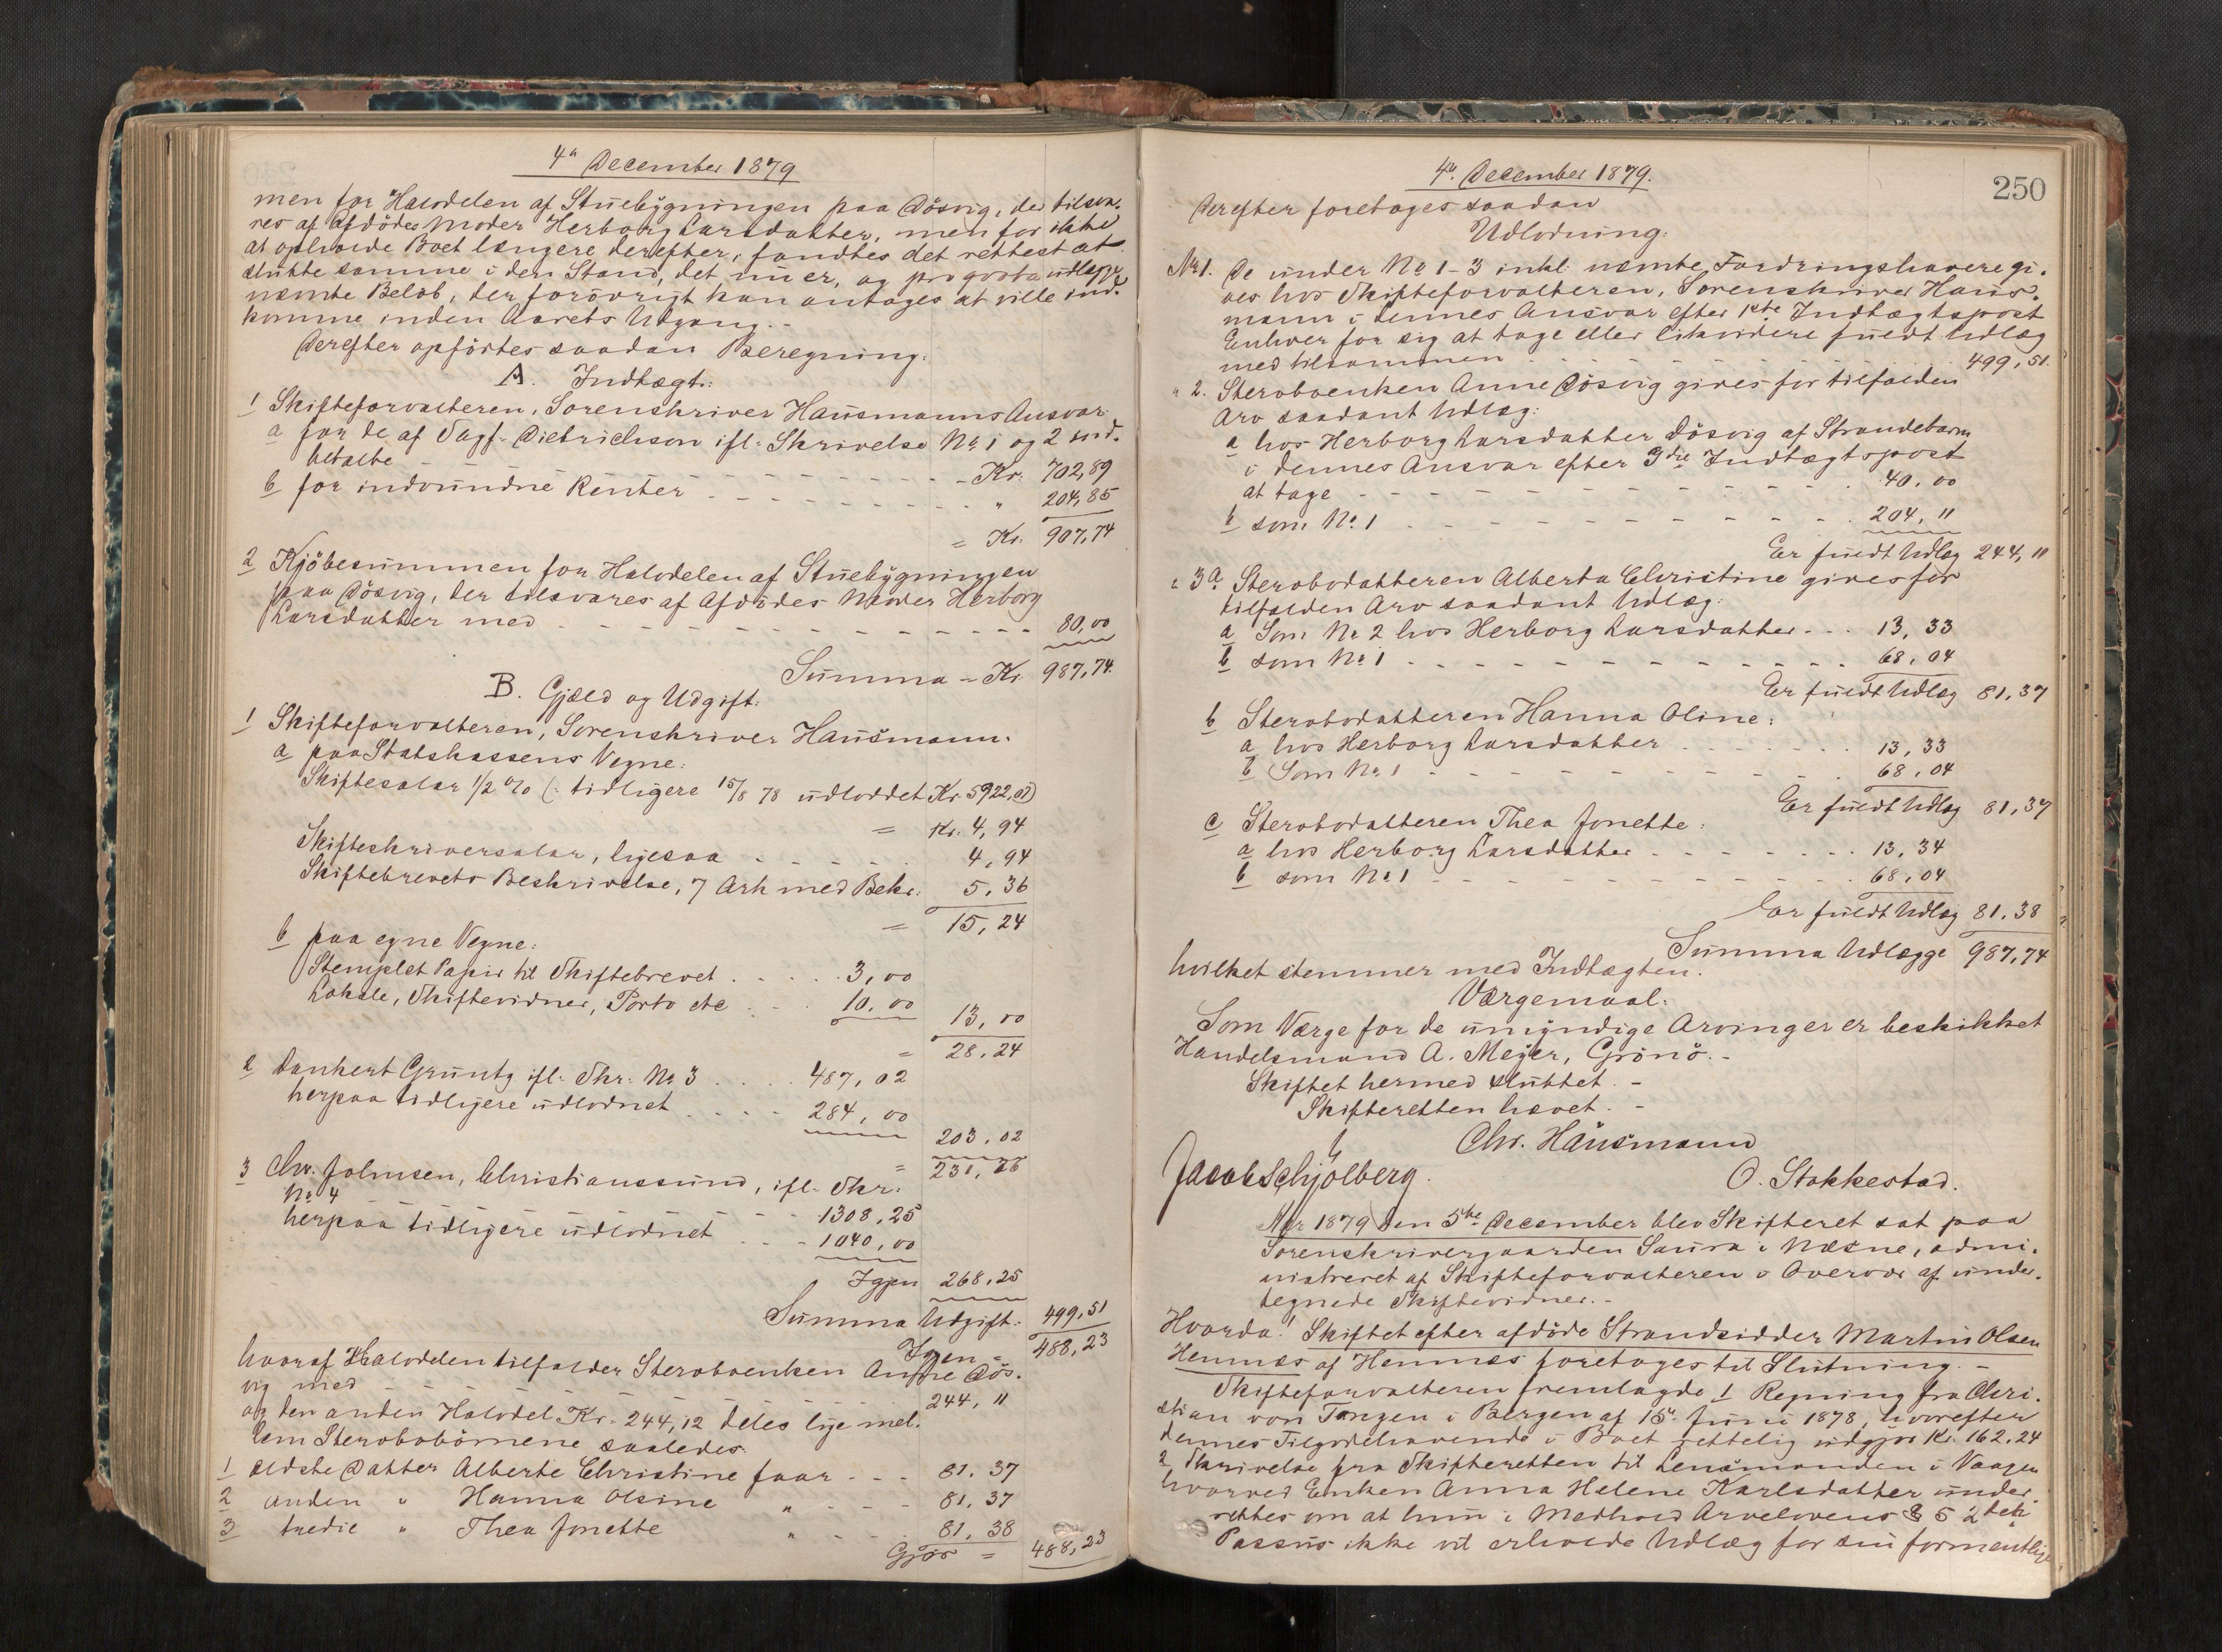 4de December 1879
men for Halvdelen af Stuebygningen paa Døsvig, der tilsva-
res af Afdødes Moder Herborg Larsdatter, men for ikke
at opholde Boet længere derefter, fandtes det rettest at
slutte samme i den Stand, det nu er, og pro qvota udlægge
nævnte Beløb, der forøvrigt kan antages at ville ind-
komme inden Aarets Udgang.-
Derefter opførtes saadan Beregning:
A. Indtægt:
1 Skifteforvalteren, Sorenskriver Hausmanns Ansvar
a for de af Sagf. Dietrichson ifl: Skrivelse No 1 og 2 ind-
betalte - - - Kr. 702,89
b for indvundne Renter - - - " 204,85
= Kr. 907,74
2 Kjöbesummen for Halvdelen af Stuebygningen
paa Døsvig, der tilsvares af Afdødes Moder Herborg
Larsdatter med - - - 80,00
Summa = Kr. 987,74.
B. Gjæld og Udgift:
1 Skifteforvalteren, Sorenskriver Hausmann.
a paa Statskassens Vegne:
Skiftesalær 1/2 % (: tidligere 15/8 78 udloddet Kr. 5922,01)
= Kr. 4,94
Skifteskriversalær, ligesaa - - - 4,94
Skiftebrevets Beskrivelse, 7 Ark med Bekr: 5,36
= 15,24
b paa egne Vegne:
Stemplet Papir til Skiftebrevet - - - 3,00
Lokale, Skiftevidner, Porto etc - - 10,00
13,00
= 28,24
2 Dankert Gruntz ifl: Skr: No 3 - - - 487,02
herpaa tidligere udlodnet - - - 284,00
203,02
= 231,26
3 Chr. Johnsen, Christianssund, ifl. Skr.
No 4 - - - 1308,25
herpaa tidligere udlodnet - - - 1040,00
Igjen 268,25
Summa Udgift: 499,51
Igjen = 488,23
hvoraf Halvdelen tilfalder Stervboenken Anne Døs-
vig med - - - 244,11
og den anden Halvdel Kr. 244,12 deles lige mel-
lem Stervbobørnene saaledes:
1 ældste Datter Alberte Christine faar - - - 81.37
2 anden " Hanna Olsine " - - - 81,37
3 tredie " Thea Jonette " - - - 81,38
Gjør = 488,23
4de December 1879.
250
Derefter foretages saadan
Udlodning:
No 1. De under No 1-3 inkl. nævnte Fordringshavere gi-
ves hos Skifteforvalteren, Sorenskriver Haus-
mann i dennes Ansvar efter 1ste Indtægtspost
Enhver for sig at tage eller likvidere fuldt Udlæg
med tilsammen - - - 499,51.
" 2. Stervboenken Anne Døsvig gives for tilfalden
Arv saadant Udlæg:
a hos Herborg Larsdatter Døsvig af Strandebarm
i dennes Ansvar efter 3die Indtægtspost
at tage - - - 40,00
b som No 1 - - - 204,11
Er fuldt Udlæg 244,11
" 3a. Stervbodatteren Alberta Christine gives for
tilfalden Arv saadant Udlæg:
a Som No 2 hos Herborg Larsdatter - - - 13,33
b som No 1 - - - 68,04
Er fuldt Udlæg 81,37
b Stervbodatteren Hanna Oline:
a hos Herborg Larsdatter - - - 13,33
b Som No 1 - - - 68,04
Er fuldt Udlæg 81,37
c Stervbodatteren Thea Jonette:
a hos Herborg Larsdatter - - - 13,34
b som No 1 - - - 68,04
Er fuldt Udlæg 81,38
Summa Udlægge 987,74
hvilket stemmer med Indtægten.
Værgemaal:
Som Værge for de umyndige Arvinger er beskikket
Handelsmand A. Meyer, Grönö.-
Skiftet hermed sluttet.-
Skifteretten hævet.-
Chr. Hausmann
Jacob Schjølberg. O. Stokkestad.
Aar 1879 den 5te December blev Skifteret sat paa
Sorenskrivergaarden Saura i Næsne, admi-
nistreret af Skifteforvalteren i Overvær af under-
tegnede Skiftevidner.-
Hvorda! Skiftet efter afdøde Strandsidder Martin Olsen
Hemnæs af Hemnæs foretages til Slutning.-
Skifteforvalteren fremlagde 1 Regning fra Chri-
stian von Tangen i Bergen af 15de Juni 1878, hvorefter
dennes Tilgodehavende i Boet rettelig udgjør Kr. 162,24
2 Skrivelse fra Skifteretten til Lensmanden i Vaagen
hvorved Enken Anna Helene Karlsdatter under-
rettes om at hun i Medhold Arvelovens § 5 2det
Passus ikke vil erholde Udlæg for sin formentlige